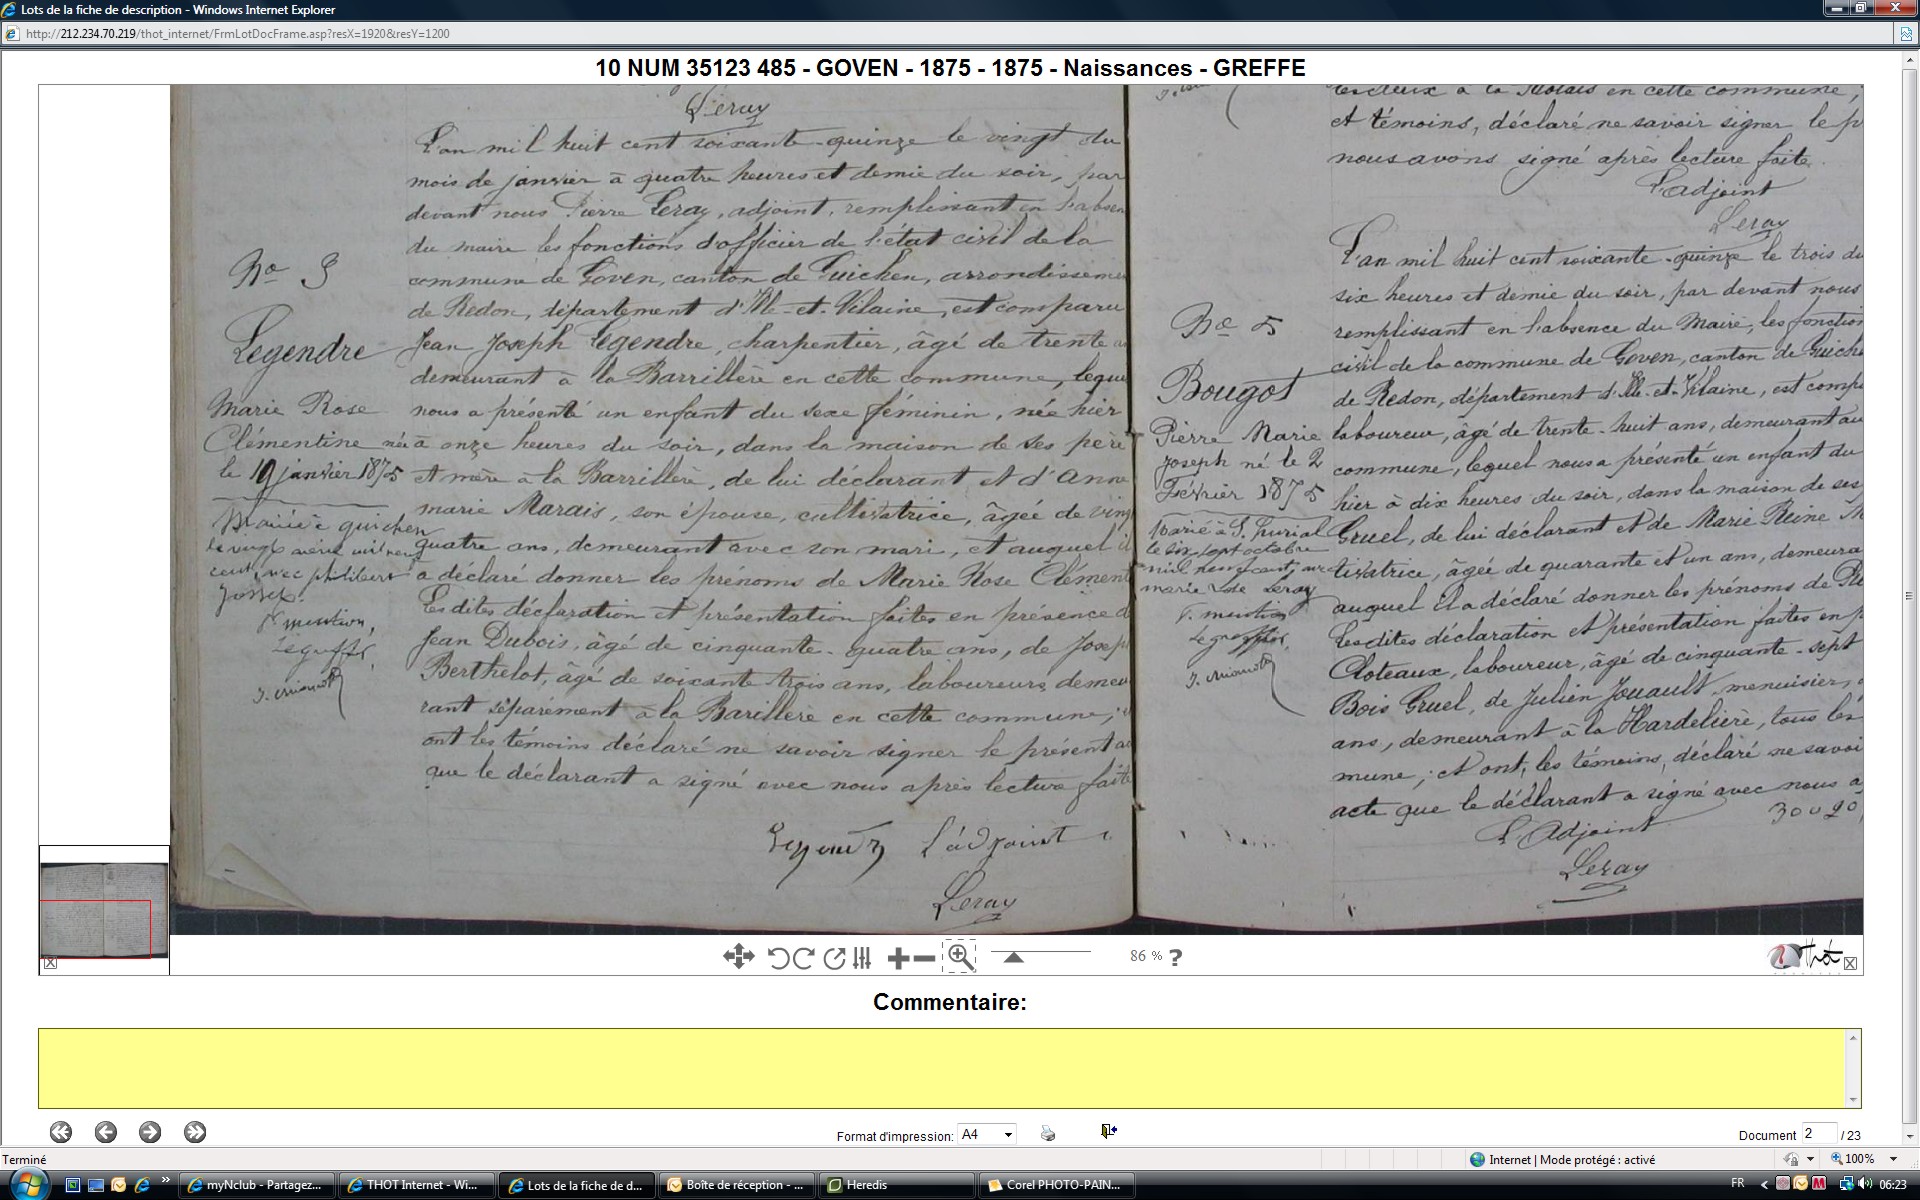 Lots de la fiche de description - Windows Internet Explorer
http://212.234.70.219/thot_internet/FrmLotDocFrame.asp?resX=1920&resY=1200
10 NUM 35123 485 - GOVEN - 1875 - 1875 - Naissances - GREFFE
Leray
L'an mil huit cent soixante-quinze le vingt du
mois de janvier à quatre heures et demie du soir, par
devant nous Pierre Leray, adjoint, remplissant en l'absen
du maire les fonctions d'officier de l'état civil de la
commune de Goven, canton de Guichen, arrondisseme
de Redon, département d'Ille-et-Vilaine, est comparu
Jean Joseph Legendre, charpentier, âgé de trente
demeurant à la Barrillère en cette commune, leque
nous a présenté un enfant du sexe féminin, née hier
à onze heures du soir, dans la maison de ses père
et mère à la Barrillère, de lui déclarant et d'Anne
marie Marais, son épouse, cultivatrice, âgée de vingt
quatre ans, demeurant avec son mari, et auquel il
a déclaré donner les prénoms de Marie Rose Clément
Lesdites déclaration et présentation faites en présence d
Jean Dubois, âgé de cinquante-quatre ans, de Josep
Berthelot, âgé de soixante trois ans, laboureurs demeu
rant séparément à la Barillère en cette commune;
ont les témoins déclaré ne savoir signer le présent a
que le déclarant a signé avec nous après lecture faite
Legendre L'adjoint
Leray
No 3
Legendre
Marie Rose
Clémentine née
le 19 janvier 1875
Mariée à guichen
le vingt
cent, avec philibert
Josset.
P. mention,
Le greffier,
No 5
Bougot
Pierre Marie
Joseph né le 2
Février 1875
Marié à S.
le six sept octobre
mil neuf cent, avec
marie Leray
P. mention
Le greffier,
en cette commune;
et témoins, déclaré ne savoir signer le p
nous avons signé après lecture faite
L'adjoint
Leray
L'an mil huit cent soixante-quinze le trois du
six heures et demie du soir, par devant nous
remplissant en l'absence du Maire, les fonction
civil de la commune de Goven, canton de Guiche
de Redon, département d'Ille-et-Vilaine, est comp
laboureur, âgé de trente-huit ans, demeurant au
commune, lequel nous a présenté un enfant du
hier à dix heures du soir, dans la maison de ses
Gruel, de lui déclarant et de Marie Reine
tivatrice, âgée de quarante et un ans, demeura
auquel il a déclaré donner les prénoms de Pie
Lesdites déclaration et présentation faites en p
Cloteaux, laboureur, âgé de cinquante-sept
Bois Gruel, de Julien Jouault, menuisier,
ans, demeurant à la Hardelière, tous les
mune; et ont, les témoins, déclaré ne savoi
acte que le déclarant a signé avec nous a
L'Adjoint
Leray
86 % ?
Thot
Commentaire:
Format d'impression: A4
Document 2 / 23
Terminé
Internet | Mode protégé : activé
100%
myNclub - Partagez...
THOT Internet - Wi...
Lots de la fiche de d...
Boîte de réception - ...
Heredis
Corel PHOTO-PAIN...
FR
06:23